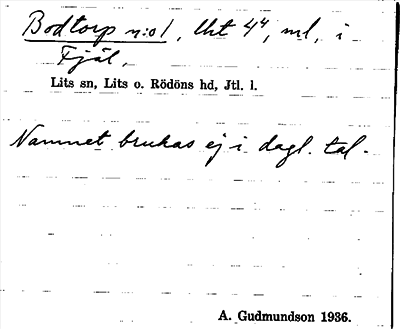 Bodtorp n:o 1, lht 4⁴, ml, i
Fjäl,
Lits sn, Lits o. Rödöns hd, Jtl. l.
Namnet brukas ej i dagl. tal.
A. Gudmundson 1936.